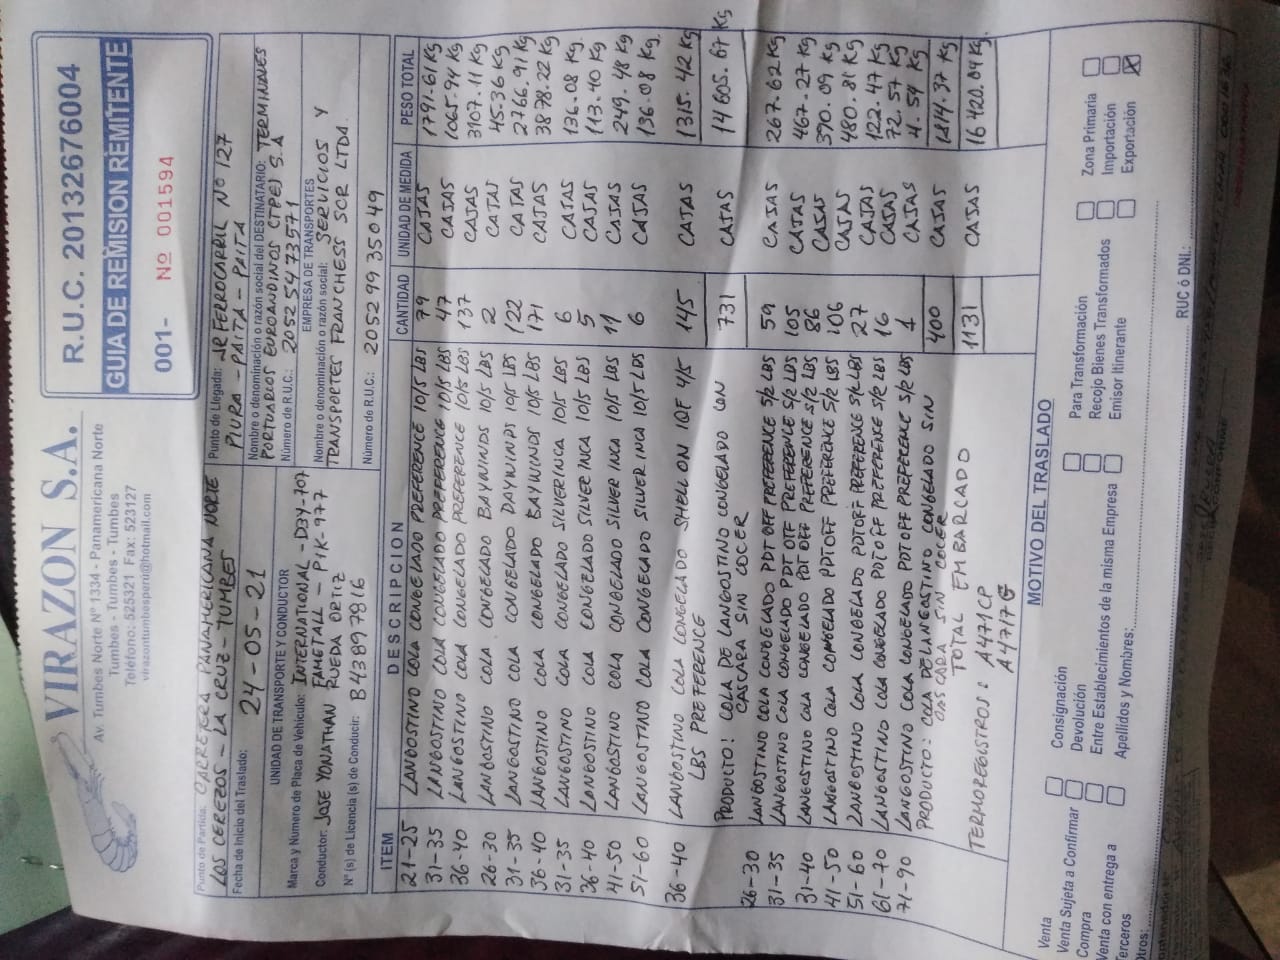 VIRAZON S.A.
Av. Tumbes Norte Nº 1334 - Panamericana Norte
Tumbes - Tumbes - Tumbes
Teléfono: 525321 Fax: 523127
virazontumbesperu@hotmail.com
R.U.C. 20132676004
GUIA DE REMISION REMITENTE
001- Nº 001594
Punto de Partida: CARRETERA PANAMERICANA NORTE
LOS CEREZOS - LA CRUZ - TUMBES
Fecha de Inicio del Traslado: 24-05-21
Punto de Llegada: JR FERROCARRIL Nº 127
PIURA - PAITA - PAITA
Nombre o denominación o razón social del DESTINATARIO: TERMINALES
PORTUARIOS EUROANDINOS (TPE) S.A
Número de R.U.C.: 20525473571
UNIDAD DE TRANSPORTE Y CONDUCTOR
Marca y Número de Placa de Vehículo: INTERNATIONAL - D3Y-707
FAMETALL - PIK-977
Conductor: JOSE YONATHAN RUEDA ORTIZ
Nº (s) de Licencia (s) de Conducir: B43897816
EMPRESA DE TRANSPORTES
Nombre o denominación o razón social: SERVICIOS Y
TRANSPORTES FRANCHESS SCR LTDA.
Número de R.U.C.: 20529935049
ITEM DESCRIPCION CANTIDAD UNIDAD DE MEDIDA PESO TOTAL
21-25 LANGOSTINO COLA CONGELADO PREFERENCE 10/5 LBS 79 CAJAS 1791.61 Kg
31-35 LANGOSTINO COLA CONGELADO PREFERENCE 10/5 LBS 47 CAJAS 1065.94 Kg
36-40 LANGOSTINO COLA CONGELADO PREFERENCE 10/5 LBS 137 CAJAS 3107.11 Kg
26-30 LANGOSTINO COLA CONGELADO BAYWINDS 10/5 LBS 2 CAJAS 45.36 Kg
31-35 LANGOSTINO COLA CONGELADO BAYWINDS 10/5 LBS 122 CAJAS 2766.91 Kg
36-40 LANGOSTINO COLA CONGELADO BAYWINDS 10/5 LBS 171 CAJAS 3878.22 Kg
31-35 LANGOSTINO COLA CONGELADO SILVERINCA 10/5 LBS 6 CAJAS 136.08 Kg.
36-40 LANGOSTINO COLA CONGELADO SILVER INCA 10/5 LBS 5 CAJAS 113.40 Kg
41-50 LANGOSTINO COLA CONGELADO SILVER INCA 10/5 LBS 11 CAJAS 249.48 Kg
51-60 LANGOSTINO COLA CONGELADO SILVER INCA 10/5 LBS 6 CAJAS 136.08 Kg.
36-40 LANGOSTINO COLA CONGELADO SHELL ON IQF 4/5 145 CAJAS 1315.42 Kg
LBS PREFERENCE
PRODUCTO: COLA DE LANGOSTINO CONGELADO CON 731 CAJAS 14605.67 Kg
CASCARA SIN COCER
26-30 LANGOSTINO COLA CONGELADO PDT OFF PREFERENCE 5/2 LBS 59 CAJAS 267.62 Kg
31-35 LANGOSTINO COLA CONGELADO PDT OFF PREFERENCE 5/2 LBS 105 CAJAS 467.27 Kg
31-40 LANGOSTINO COLA CONGELADO PDT OFF PREFERENCE 5/2 LBS 86 CAJAS 390.09 Kg
41-50 LANGOSTINO COLA CONGELADO PDT OFF PREFERENCE 5/2 LBS 106 CAJAS 480.81 Kg
51-60 LANGOSTINO COLA CONGELADO PDT OFF PREFERENCE 5/2 LBS 27 CAJAS 122.47 Kg
61-70 LANGOSTINO COLA CONGELADO PDT OFF PREFERENCE 5/2 LBS 16 CAJAS 72.57 Kg
71-90 LANGOSTINO COLA CONGELADO PDT OFF PREFERENCE 5/2 LBS 1 CAJAS 4.54 Kg
PRODUCTO: COLA DE LANGOSTINO CONGELADO SIN 400 CAJAS 1814.37 Kg
CASCARA SIN COCER
TOTAL EMBARCADO 1131 CAJAS 16420.04 Kg.
TERMOREGISTROS: A471CP
A4717G
MOTIVO DEL TRASLADO
Venta
Venta Sujeta a Confirmar
Compra
Venta con entrega a
Terceros
Otros:
Consignación
Devolución
Entre Establecimientos de la misma Empresa
Apellidos y Nombres:
Para Transformación
Recojo Bienes Transformados
Emisor Itinerante
Zona Primaria
Importación
Exportación X
RUC ó DNI.: